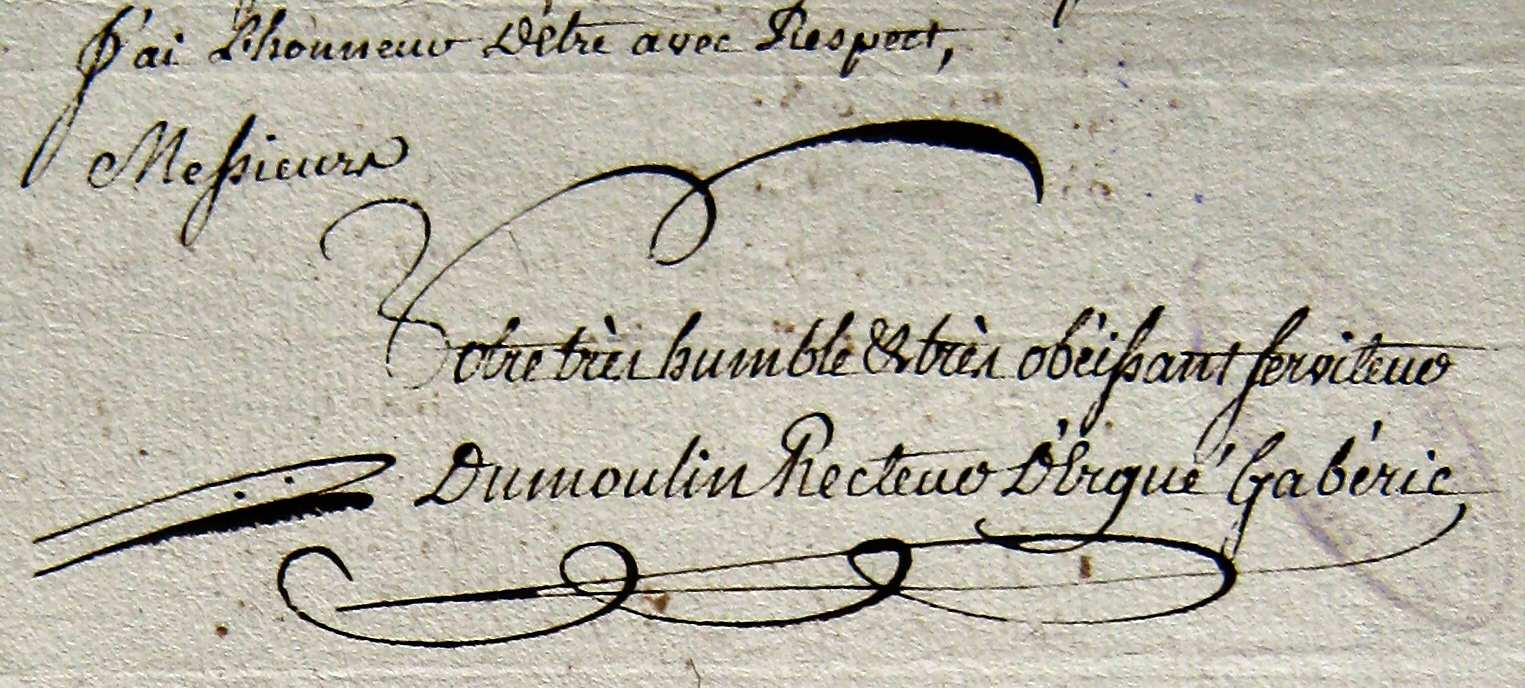 J'ai L'honneur D'être avec Respect,
Messieurs
Votre très humble & très obéissant serviteur
Dumoulin Recteur D'Ergué Gabéric